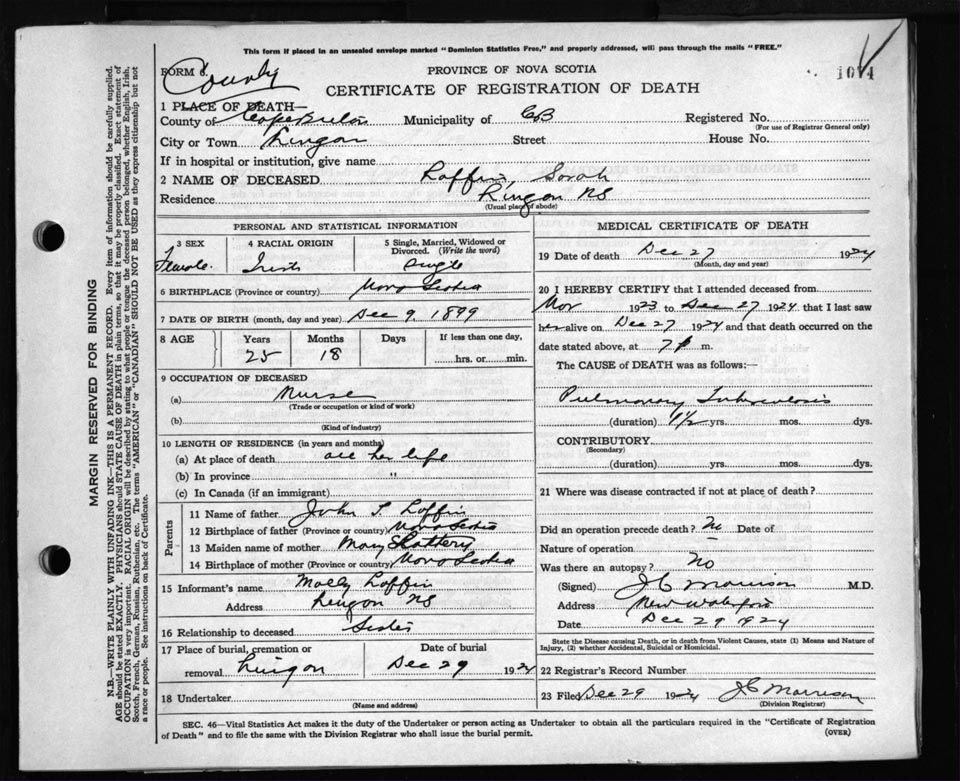 This form if placed in an unsealed envelope marked "Dominion Statistics Free," and properly addressed, will pass through the mails "FREE."
FORM 8. PROVINCE OF NOVA SCOTIA 1074
County CERTIFICATE OF REGISTRATION OF DEATH
1 PLACE OF DEATH—
County of Cape Breton Municipality of CB Registered No.
(For use of Registrar General only)
City or Town Lingan Street House No.
If in hospital or institution, give name
2 NAME OF DECEASED Laffin, Sarah
Residence Lingan NS
(Usual place of abode)
PERSONAL AND STATISTICAL INFORMATION
3 SEX 4 RACIAL ORIGIN 5 Single, Married, Widowed or Divorced. (Write the word)
Female Irish Single
6 BIRTHPLACE (Province or country) Nova Scotia
7 DATE OF BIRTH (month, day and year) Dec 9, 1899
8 AGE Years Months Days If less than one day,
25 18 hrs. or min.
9 OCCUPATION OF DECEASED
(a) Nurse
(Trade or occupation or kind of work)
(b)
(Kind of industry)
10 LENGTH OF RESIDENCE (in years and months)
(a) At place of death all her life
(b) In province "
(c) In Canada (if an immigrant)
Parents
11 Name of father John T Laffin
12 Birthplace of father (Province or country) Nova Scotia
13 Maiden name of mother Mary Slattery
14 Birthplace of mother (Province or country) Nova Scotia
15 Informant's name Molly Laffin
Address Lingan NS
16 Relationship to deceased Sister
17 Place of burial, cremation or removal Lingan Date of burial Dec 29 1924
18 Undertaker
(Name and address)
MEDICAL CERTIFICATE OF DEATH
19 Date of death Dec 27 1924
(Month, day and year)
20 I HEREBY CERTIFY that I attended deceased from
Nov 1923 to Dec 27 1924, that I last saw
her alive on Dec 27 1924 and that death occurred on the
date stated above, at 7 P m.
The CAUSE of DEATH was as follows:—
Pulmonary Tuberculosis
(duration) 1 1/2 yrs. mos. dys.
CONTRIBUTORY
(Secondary)
(duration) yrs. mos. dys.
21 Where was disease contracted if not at place of death?
Did an operation precede death? No Date of
Nature of operation
Was there an autopsy? No
(Signed) JC Morrison M.D.
Address New Waterford
Date Dec 29 1924
State the Disease causing Death, or in death from Violent Causes, state (1) Means and Nature of
Injury, (2) whether Accidental, Suicidal or Homicidal.
22 Registrar's Record Number
23 Filed Dec 29 1924 JC Morrison
(Division Registrar)
SEC. 46—Vital Statistics Act makes it the duty of the Undertaker or person acting as Undertaker to obtain all the particulars required in the "Certificate of Registration
of Death" and to file the same with the Division Registrar who shall issue the burial permit. (OVER)
MARGIN RESERVED FOR BINDING
N.B.—WRITE PLAINLY WITH UNFADING INK—THIS IS A PERMANENT RECORD. Every item of information should be carefully supplied.
AGE should be stated EXACTLY. PHYSICIANS should STATE CAUSE OF DEATH in plain terms, so that it may be properly classified. Exact statement of
OCCUPATION is very important. RACIAL ORIGIN will be described by stating to what people or tongue the deceased person belonged, whether English, Irish,
Scotch, French, German, Russian, Ruthenian, etc. The terms "AMERICAN" or "CANADIAN" SHOULD NOT BE USED as they express citizenship but not
a race or people. See instructions on back of Certificate.